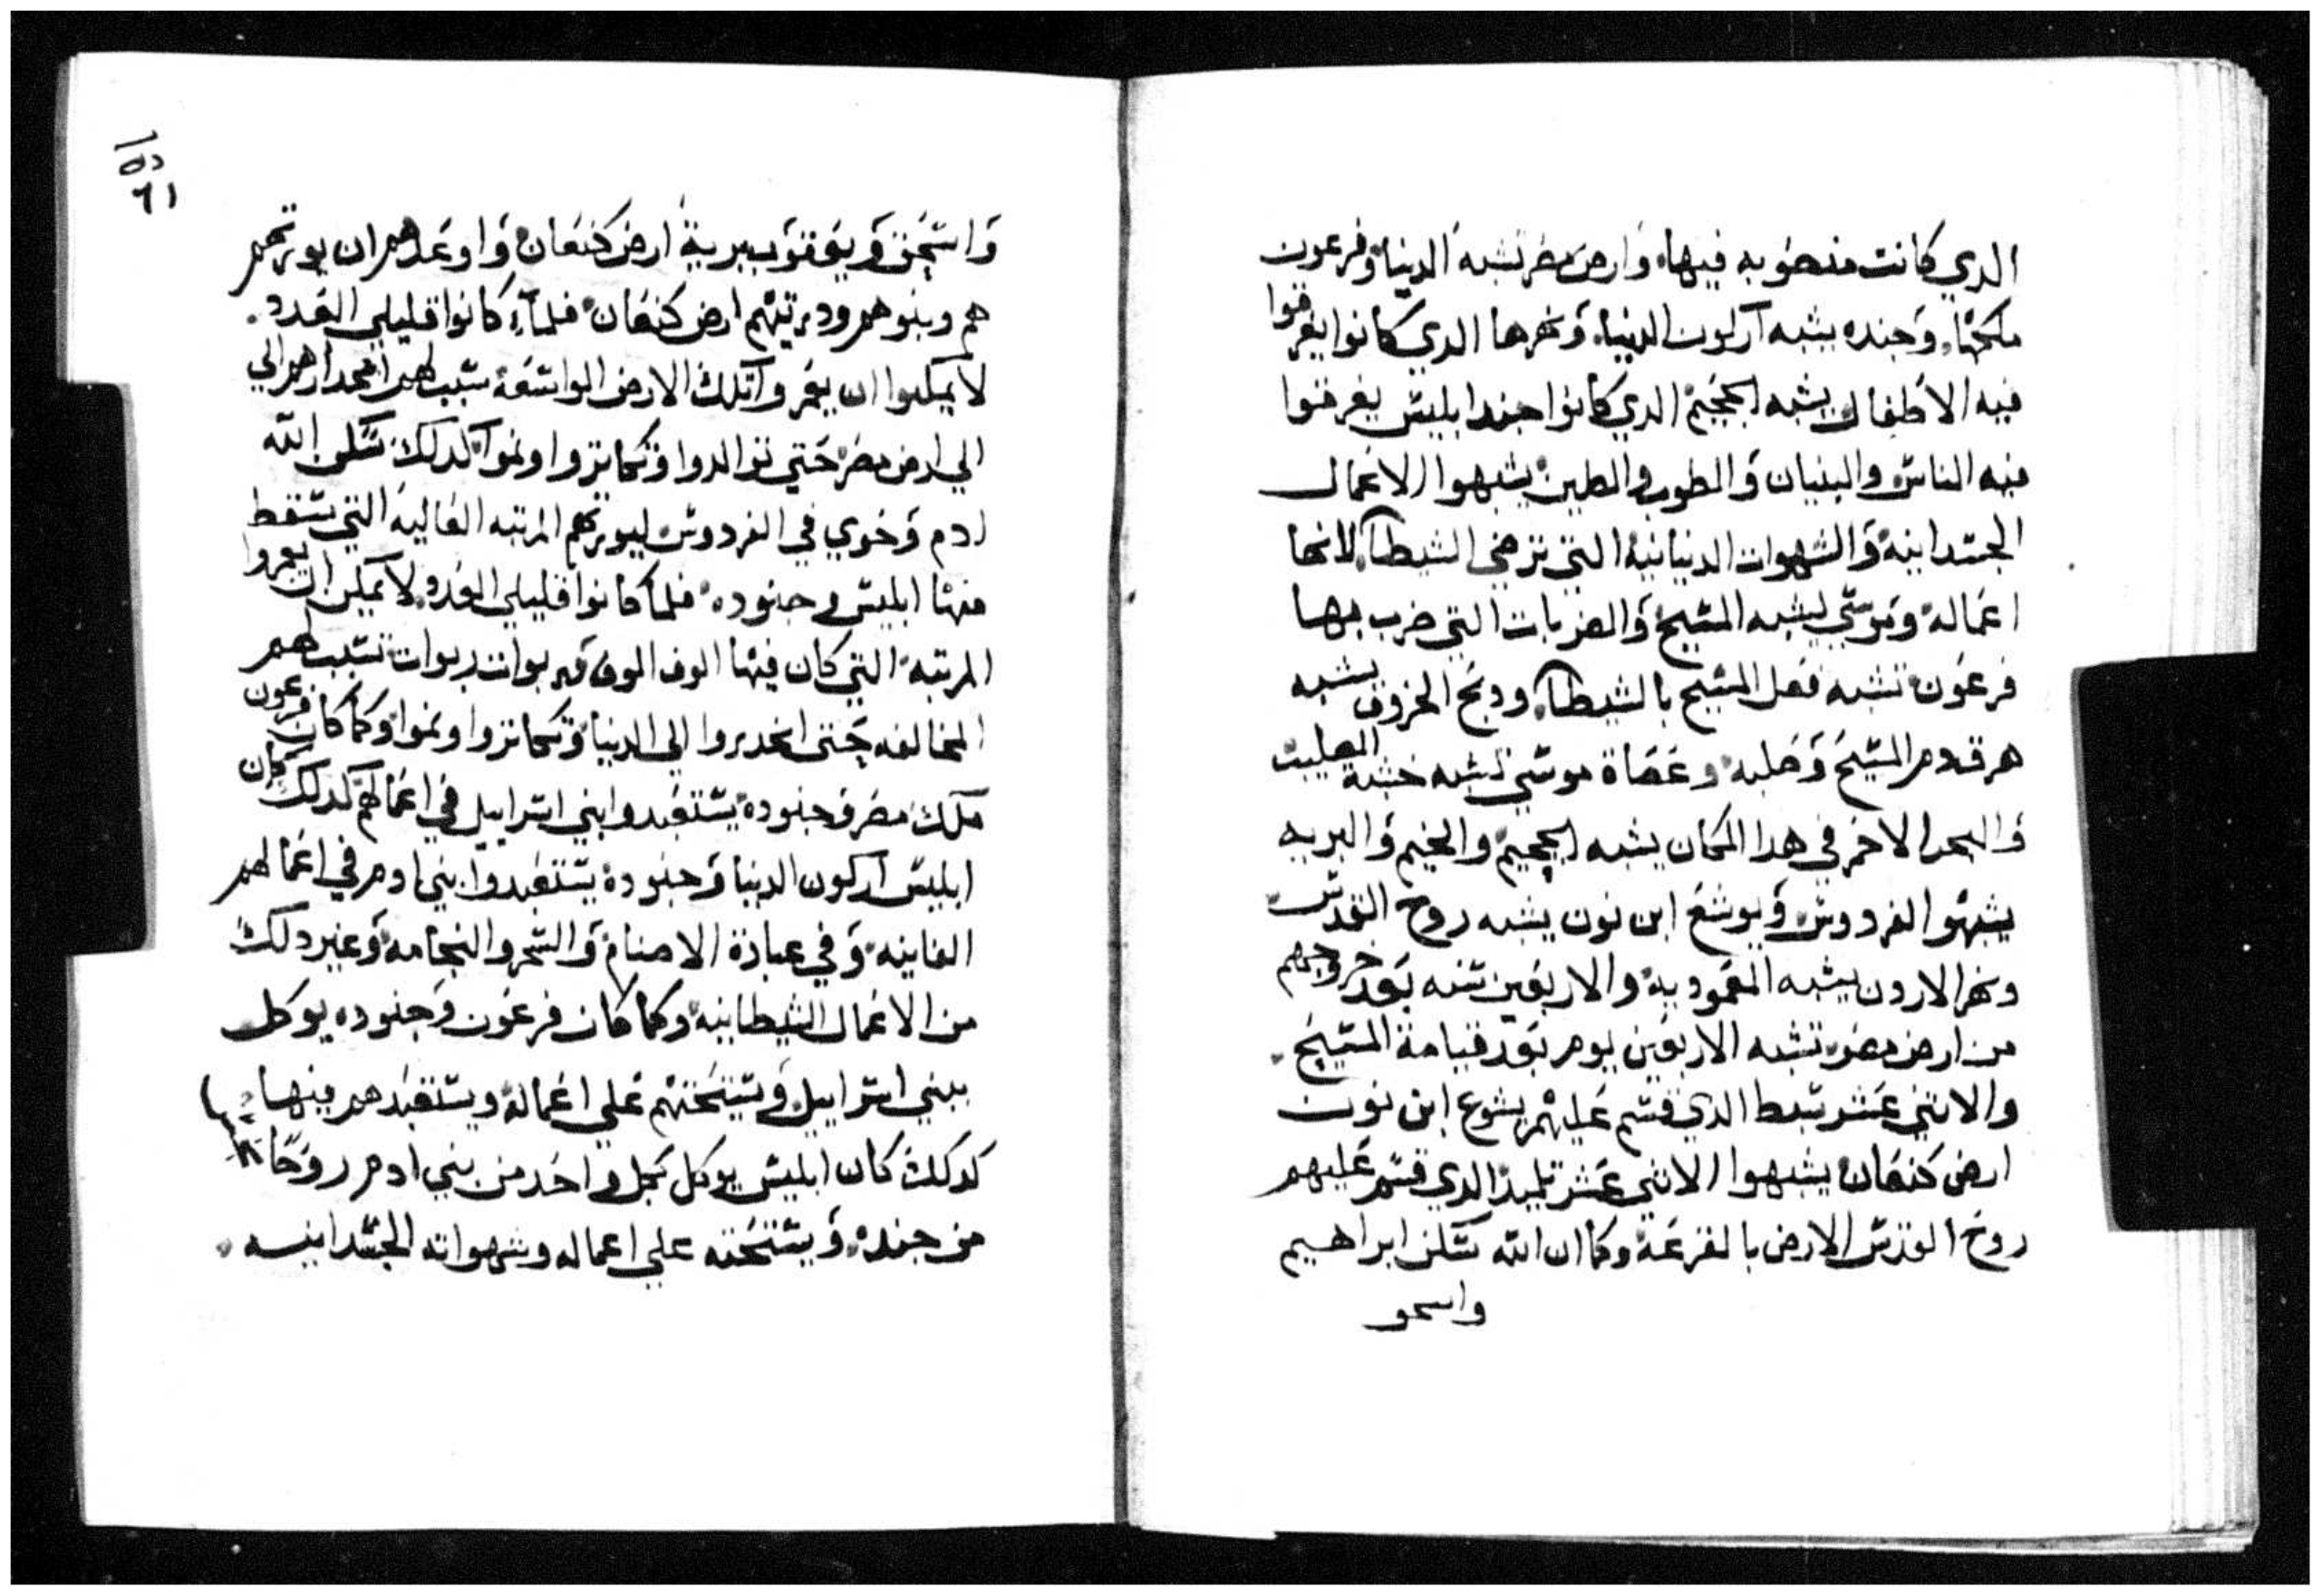 الدي كانت منصوبه فيها. وارض مصر تشبه الدنيا وفرعون
ملكها. وجنده يشبه آركون الدنيا. ونهرها الدي كانوا يغرقوا
فيه الاطفال يشبه الجحيم الدي كانوا جند ابليس يغرقوا
فيه الناس والبنيان والطوب والطين يشبهوا الاعمال
الجسدانيه والشهوات الدنيانيه التي ترضي الشيطان لانها
اعماله وموسي يشبه المسيح والضربات التي ضرب بها
فرعون تشبه فعل المسيح بالشيطان. ودبح الخروف يشبه
هرق دم المسيح وصلبه وعصاة موسي تشبه خشبة الصليب
والبحر الاحمر في هدا المكان يشبه الجحيم والخيم والبريه
يشبهوا الفردوس ويوشع ابن نون يشبه روح القدس
ونهر الاردن يشبه المعموديه والاربعين سنه بعد خروجهم
من ارض مصر تشبه الاربعين يوم بعد قيامة المسيح.
والاثني عشر سبط الدي قسم عليهم يشوع ابن نون
ارض كنعان يشبهوا الاثني عشر تلميذ الدي قسم عليهم
روح القدس الارض بالقرعة وكما ان الله سكن ابراهيم
واسحق
١٥٥
٦١
واسحق ويعقوب ببرية ارض كنعان واوعدهم ان يورتهم
هم وبنوهم ودريتهم ارض كنعان فلما كانوا قليلي العدد.
لا يمكنوا ان يعمروا تلك الارض الواسعة سبب لهم انحدارهم الي
الي ارض مصر حتي توالدوا وتكاتروا ونموا كدلك سكن الله
ادم وحوي في الفردوس ليورتهم المرتبه العاليه التي سقط
منها ابليس وجنوده. فلما كانوا قليلي العدد لا يمكن ان يعمروا
المرتبه التي كان فيها الوف الوف وربوات ربوات تسبب لهم
المخالفه حتى انحدروا الي الدنيا وتكاتروا ونموا وكما كان فرعون
ملك مصر وجنوده يستعبدوا بني اسراييل في اعمالهم كدلك كان
ابليس اركون الدنيا وجنوده يستعبدوا بني ادم في اعمالهم
الفانيه وفي عبادة الاصنام والسحر والنجامه وغير دلك
من الاعمال الشيطانيه وكما كان فرعون وجنوده يوكل
ببني اسراييل ويستحتهم علي اعماله ويستعبدهم فيها
كدلك كان ابليس يوكل بكل واحد من بني ادم روحًا
من جنده. ويستحته علي اعماله وشهواته الجسدانيه.